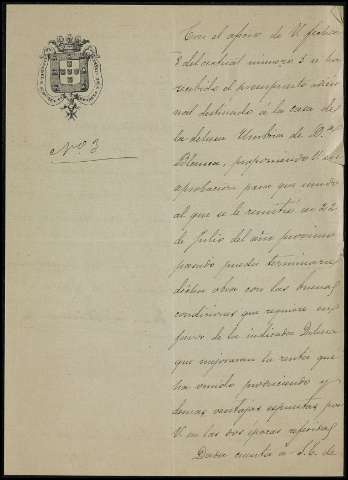 Nº 3
Con el oficio de V. fecha
3 del actual numero 3 se ha
recibido el presupuesto adicio
nal destinado á la casa de
la dehesa Umbria de Dª
Blanca, proponiendo V. su
aprobacion para que unido
al que se le remitió en 22
de Julio del año proximo
pasado pueda terminarse
dicha obra con las buenas
condiciones que requiere en
favor de la indicada Dehesa
que mejoraran la renta que
ha venido produciendo y
demas ventajas espuestas por
V. en las dos epocas referidas
Dada cuenta á S. E. de